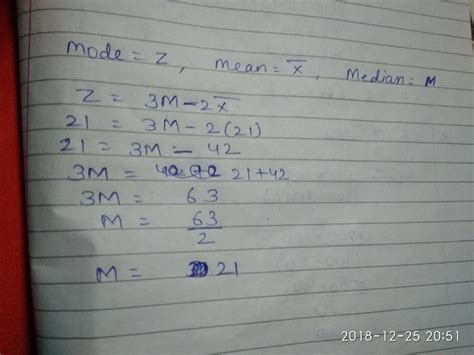 mode = Z, mean = x̅, Median = M
Z = 3M - 2x̅
21 = 3M - 2(21)
21 = 3M - 42
3M = 21+42
3M = 63
M = 63/2
M = 21
2018-12-25 20:51